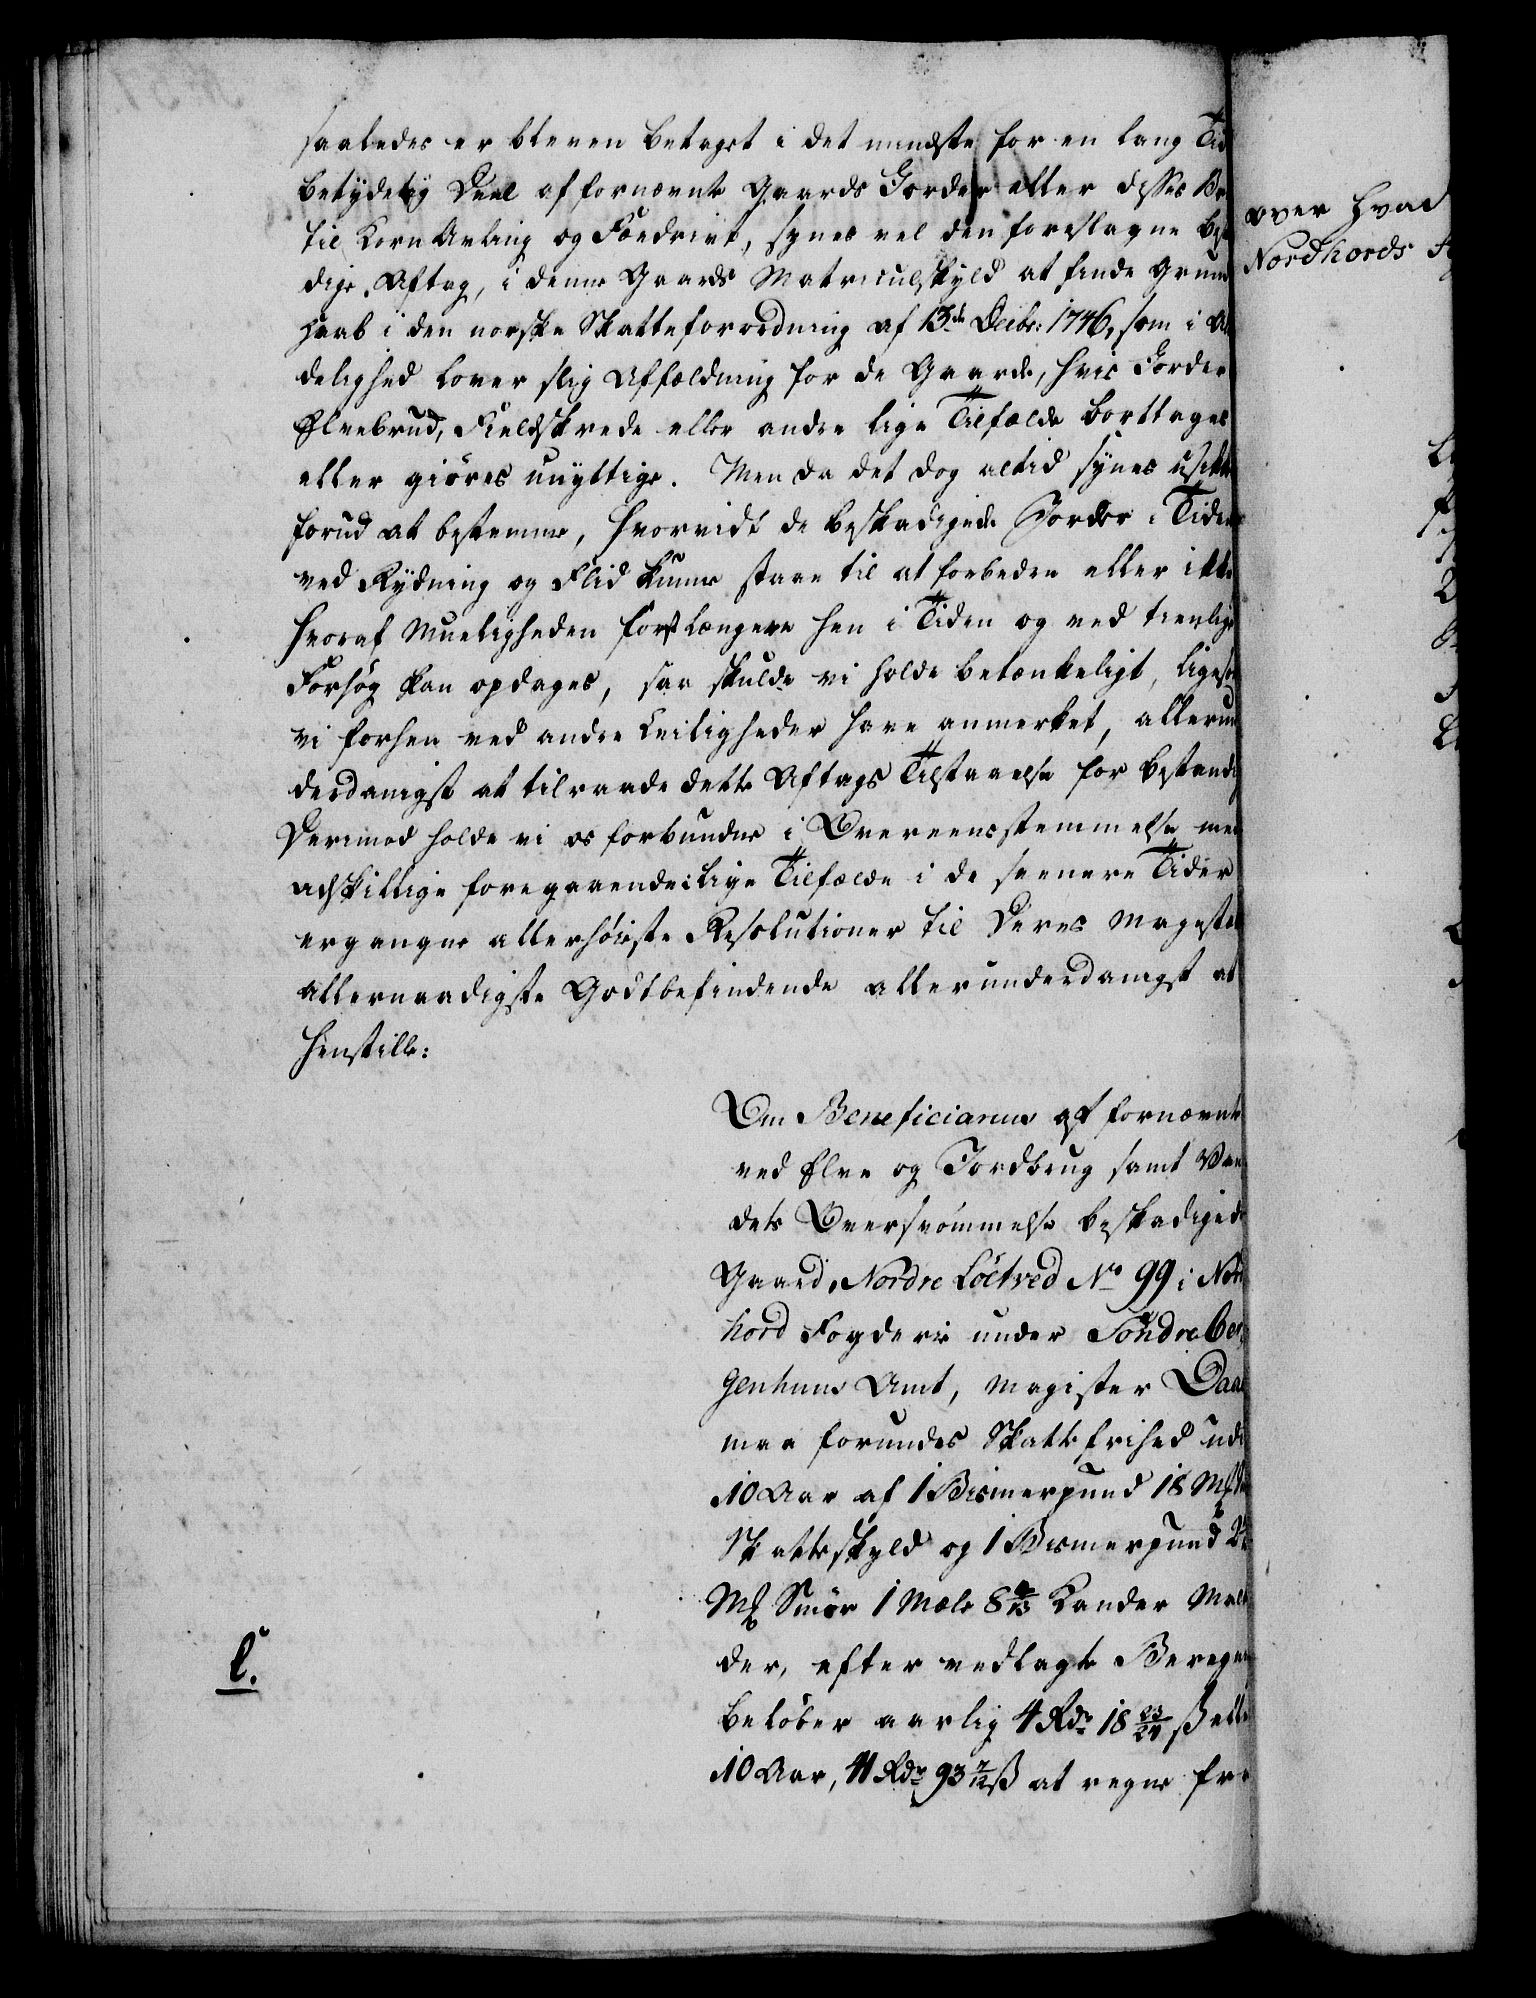 saaledes er bleven betaget i det mindste for en lang Tid
betydelig Deel af fornævnte Gaards Jorder eller disses Br
til Korn Avling og Foedrivt, synes vel den foreslagne be
dige Aftag, i denne Gaards Matriculskyld at finde Grund
Haab i den norske Skatteforordning af 13de Decbr: 1746, som i A
delighed lover slig Affældning for de Gaarde, hvis Jorder
Elvebrud, Fieldskrede eller andre lige Tilfælde borttages
eller giöres unyttige. Men da det dog altid synes usikk
forud at bestemme, hvorvidt de beskadigede Jorder i Tiden
ved Rydning og Flid kunne staae til at forbedre eller ikke
hvoraf Mueligheden först længere hen i Tiden og ved tienlige
Forsög kan opdages, saa skulde vi holde betænkeligt, ligesom
vi forhen ved andre Leiligheder have anmerket, allerun
derdanigst at tilraade dette Aftags Tilstaaelse for bestandig
Derimod holde vi os forbundne i Overeensstemmelse med
adskillige foregaaende lige Tilfælde i de seenere Tider
ergangne allerhöieste Resolutioner til Deres Majestæts
allernaadigste Godtbefindende allerunderdanigst at
henstille:
Om Beneficiarius af fornævnte
ved Elve og Jordbrug samt Van
dets Oversvömmelse beskadigede
Gaard, Nordre Löctved No 99 i Nord
hord Fogderie under Söndre Ber
genhuus Amt, Magister Daae
maa forundes Skattefrihed udi
10 Aar af 1 Bismerpund 18 M
Skatteskyld og 1 Bismerpund 2
M Smör 1 Mæle 8 4/13 Kander Malt
der, efter vedlagte Beregn
l.
belöber aarlig 4 Rdr 18 23/24 ß eller
10 Aar, 41 Rdr 93 7/12 ß at regne fra
over Hvad
Nordhords F